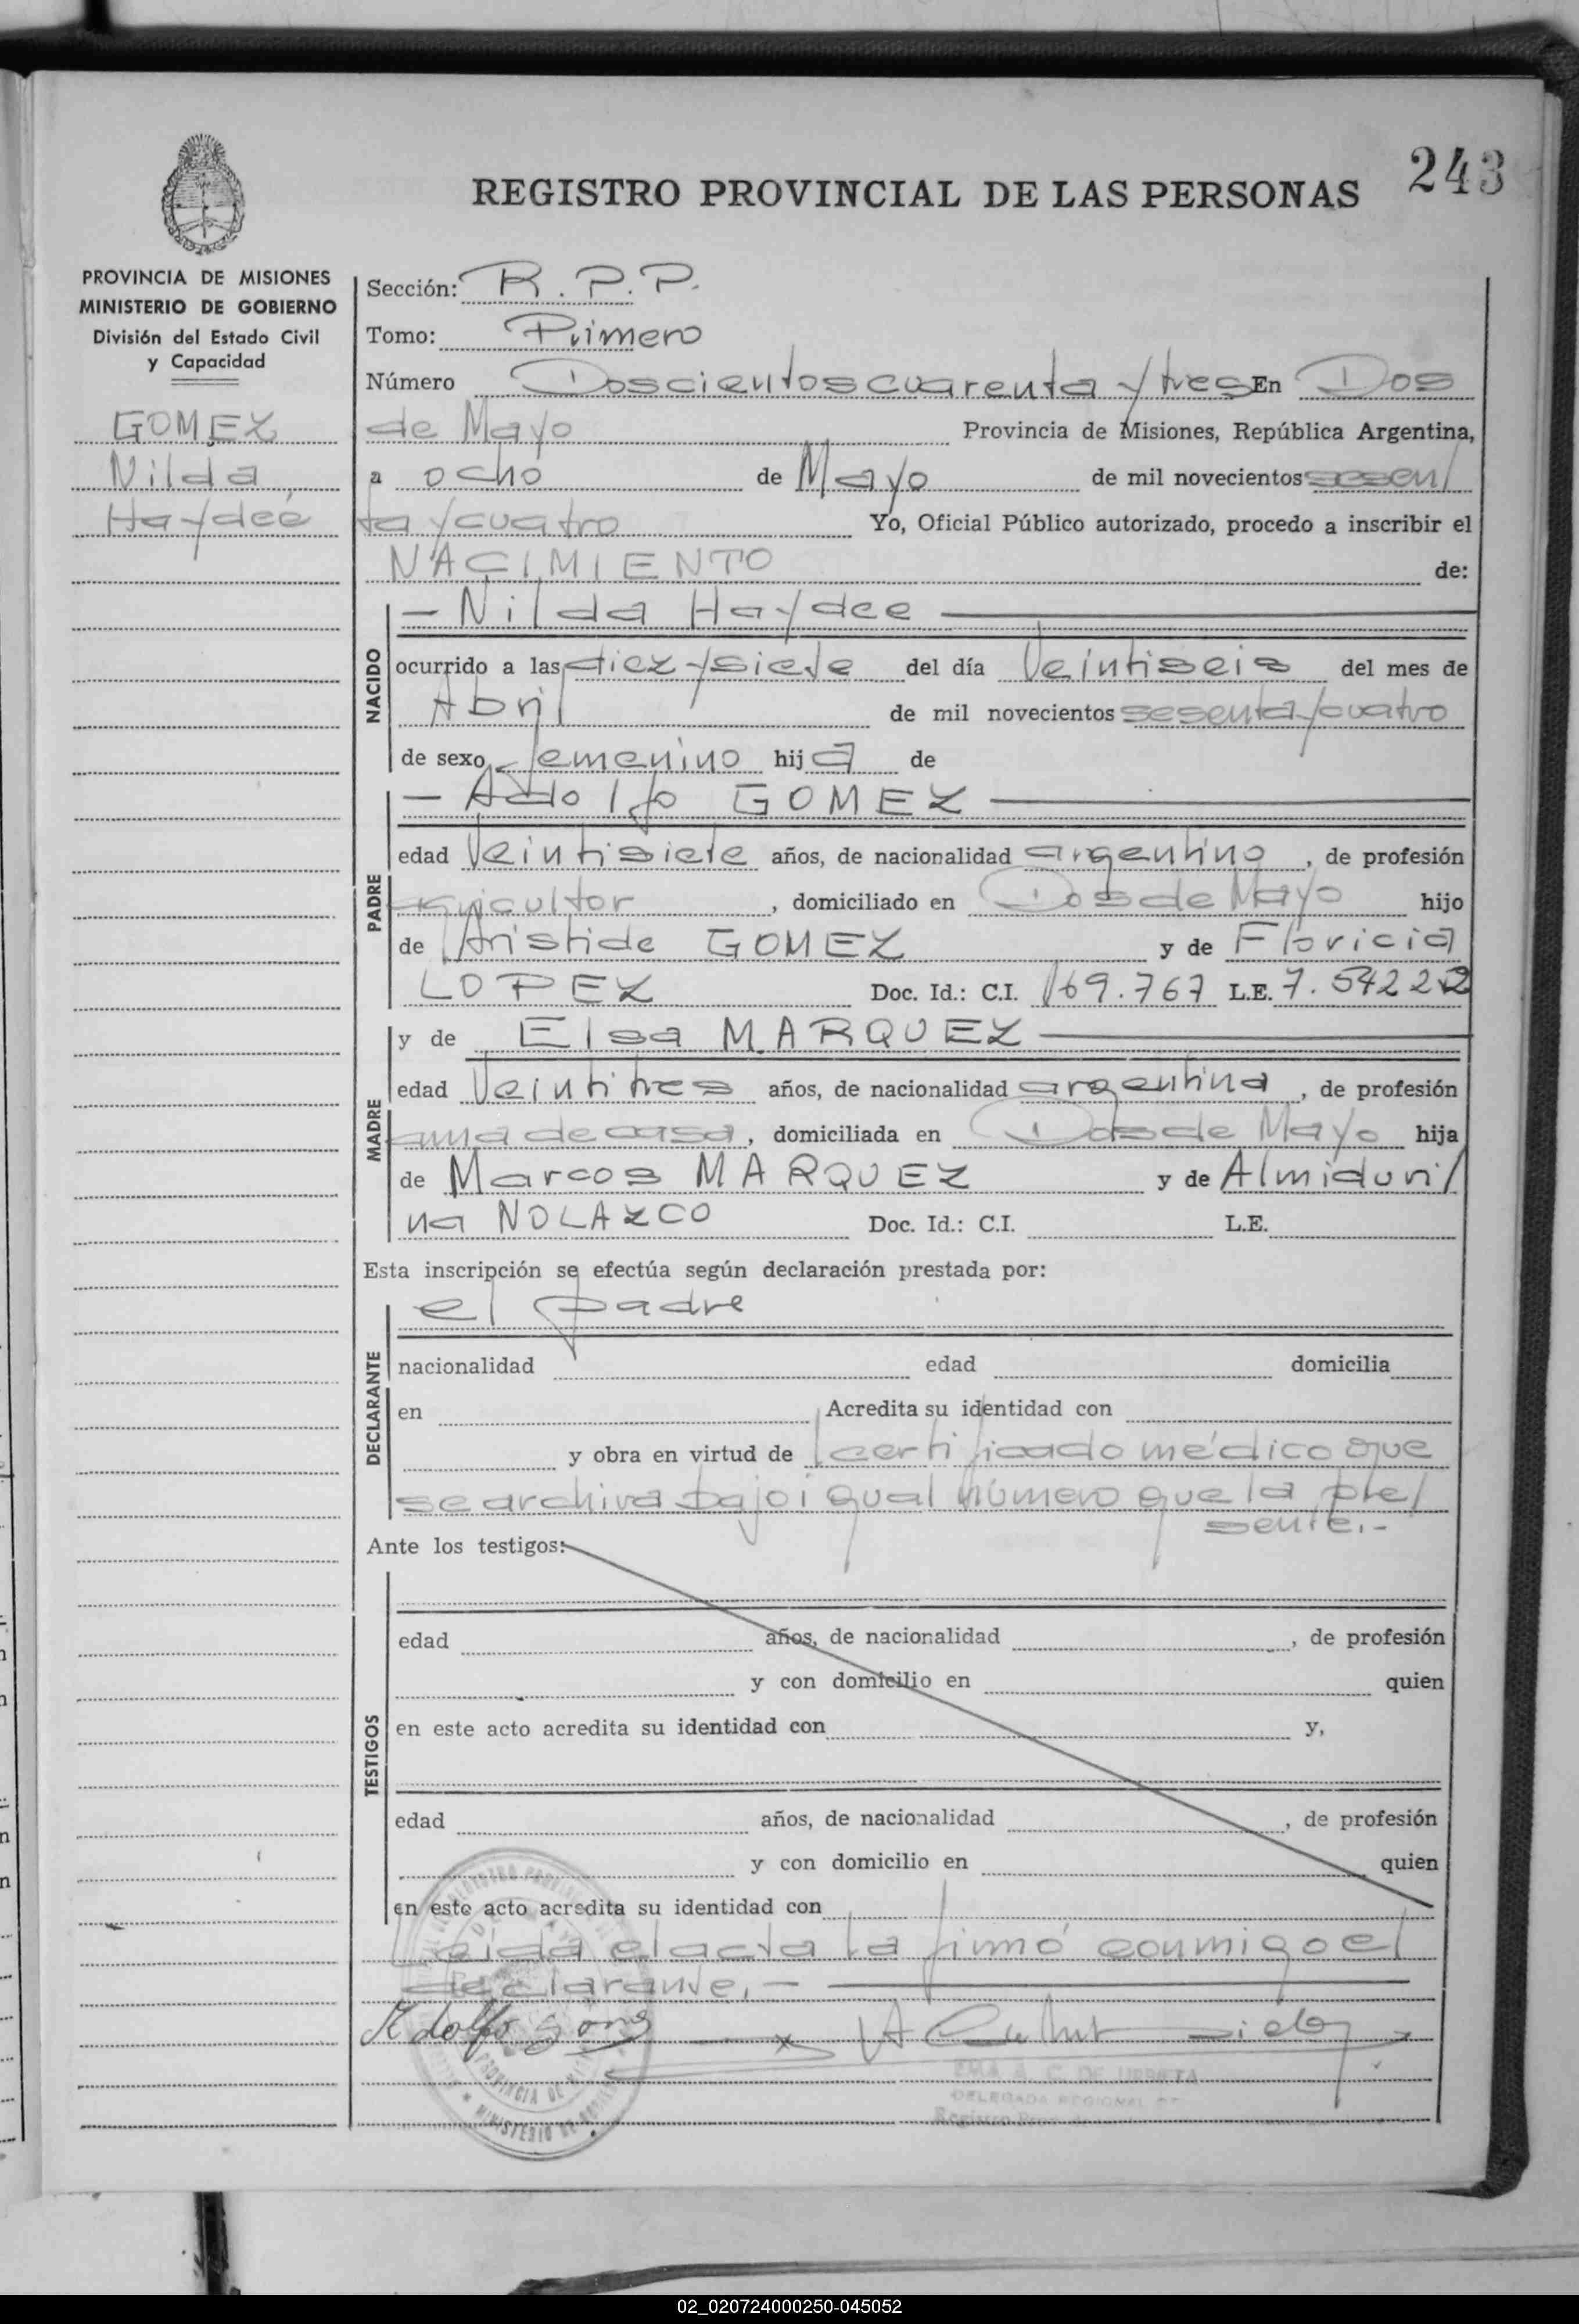 243
REGISTRO PROVINCIAL DE LAS PERSONAS
PROVINCIA DE MISIONES
MINISTERIO DE GOBIERNO
División del Estado Civil
y Capacidad
GOMEZ
Nilda
Haydeé
Sección: R. P. P.
Tomo: Primero
Número Doscientos cuarenta y tres En Dos
de Mayo Provincia de Misiones, República Argentina,
a ocho de Mayo de mil novecientos sesen/
ta y cuatro Yo, Oficial Público autorizado, procedo a inscribir el
NACIMIENTO de:
NACIDO
— Nilda Haydee —
ocurrido a las diez y siete del día Veintiseis del mes de
Abril de mil novecientos sesenta y cuatro
de sexo femenino hija de
PADRE
— Adolfo GOMEZ —
edad Veintisiete años, de nacionalidad argentino, de profesión
agricultor, domiciliado en Dos de Mayo hijo
de Aristide GOMEZ y de Floricia
LOPEZ Doc. Id.: C.I. 169.767 L.E. 7.542
MADRE
y de Elsa MARQUEZ —
edad Veintitres años, de nacionalidad argentina, de profesión
ama de casa, domiciliada en Dos de Mayo hija
de Marcos MARQUEZ y de Almiduri/
na NOLAZCO Doc. Id.: C.I. L.E.
Esta inscripción se efectúa según declaración prestada por:
DECLARANTE
el padre
nacionalidad edad domicilia
en Acredita su identidad con
y obra en virtud de certificado médico que
se archiva bajo igual número que la pre/
sente.-
Ante los testigos:
TESTIGOS
edad años, de nacionalidad , de profesión
y con domicilio en quien
en este acto acredita su identidad con y,
edad años, de nacionalidad , de profesión
y con domicilio en quien
en este acto acredita su identidad con
Leida el acta la firmó conmigo el
declarante.-
Adolfo
PROVINCIA DE
MINISTERIO DE
EMA A. C. DE URRUTA
DELEGADA REGIONAL
02_020724000250-045052